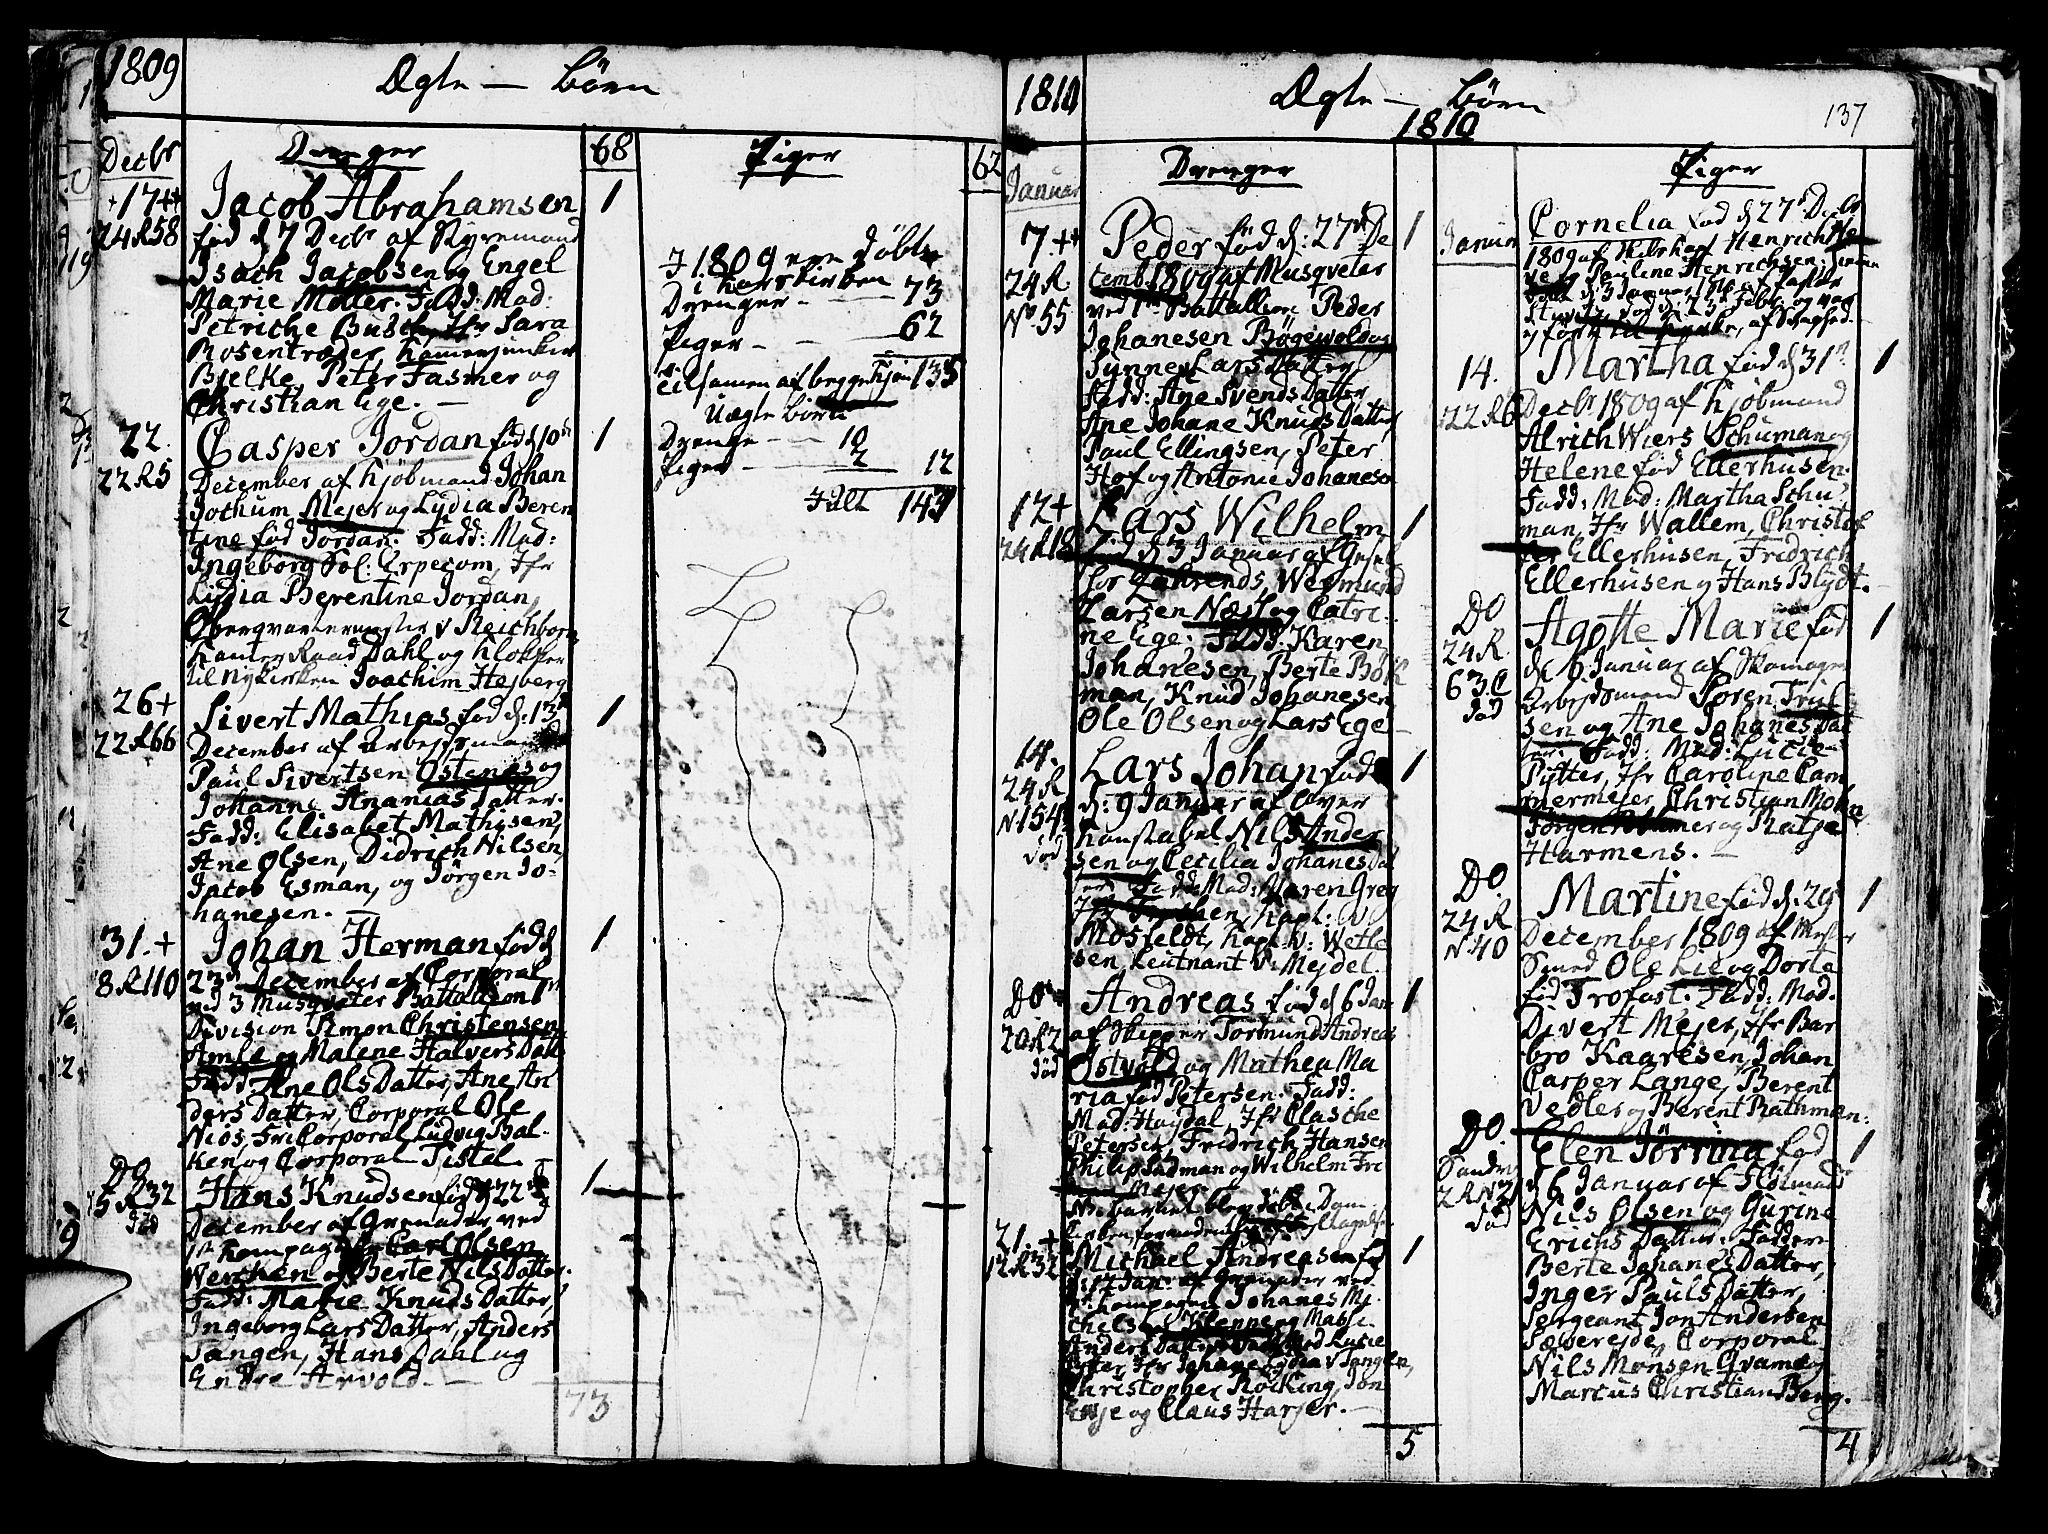 1809
Ægte — Børn
Decbr
Drenger
68
Piger
62
+17++
24R58
Jacob Abrahamsen 1
fød d 7 Decbr af Styrmand
Isach Jacobsen og Engel
Marie Møller. Fadd: Mad:
Petriche Busch, Jfr Sara
Rosentræder, Kamerjunker
Bjelke, Peter Fasmer og
Christian Ege. —
22.
22R5
Casper Jordan fød d 10de 1
December af Kjøbmand Johan
Jochum Mejer og Lydia Beren
tine fød Jordan. Fadd: Mad:
Ingeborg Sol: Erpecom, Jfr
Lydia Berentine Jordan,
v Reichborn
Dahl og Klokker
til Nykirken Joachim Hejberg
26+
22R66
Sivert Mathias fød d: 13d 1
December af Arbejdsmand
Paul Sivertsen Ostenes og
Johanne Ananias Datter.
Fadd: Elisabet Mathisen,
Ane Olsen, Didrich Nilsen,
Jacob Esman, og Jørgen Jo-
hanesen. —
31.+
8R110
Johan Herman fød d 1
23d December af Corporal
ved 3 Musqveter Battalion
Division Simon Christensen
Amle og Malene Halvers Datt
Fadd: Ane Ols Datter, Ane An
ders Datter, Corporal Ole
Nios, FriCorporal Ludvig Bal-
ken og Corporal Tistel —
DO
5R32
død
Hans Knudsen fød d 22de 1
December af Grenader ved
1st Kompagni Carl Olsen
Wercken og Berte Nils Datter.
Fadd: Marie Knuds Datter,
Ingeborg Lars Datter, Anders
Tangen, Hans Dahl og
Endre Arvold. —
73
I 1809 ere døbte
i Korskirken
Drenger — — 73
Piger — — 62
Tilsamen af begge Kjøn 135
Uægte Børn
Drenge — — 10
Piger — — 2 12
Ialt 147
1810
Ægte — Børn
1810
137
Januar
Drenger
Piger
7.++
24R
No 55
Peder fød d: 27d De 1
cembr 1809 af Musqveter
ved 1te Battallion Peder
Johanesen Bøgevold og
Synnev Lars Datter
Fadd: Ane Svends Datter
Ane Johane Knuds Datter,
Paul Ellingsen, Peter
Hof og Antonie Johaneso
12+
24R18
Lars Wilhelm 1
fød d 3 Januar af
for Gahrends, Wegmund
Larsen Næst og Catri-
ne Ege. Fadd: Karen
Johanesen, Berte Bøk
man, Knud Johanesen
Ole Olsen og Lars Ege —
14.
24R
N 154
død
Lars Johan fød 1
d: 9 Januar af Over
Konstabel Nils Ander
sen og Cecilia Johanes Dat
ter. Fadd: Mad: Maren Greg
Jfr , Kapt: v
Mosfeldt, Kapt: v: Wetle
sen Leutnant v: Mejdel.
DO
20R2
død
Andreas fød d 6 Jan 1
af Skipper Tormund Andreas
Østvold og Mathea Ma
ria fød Petersen. Fadd:
Mad: Høydal, Jfr Clasche
Petersen, Fridrich Hansen
Philip Sadman og Wilhelm Fri
Mejer
NB barnet blev døbt i Dom
21.+
12R32
Michael Andreas fø 1
d: 12 Jan: af Grenader ved
Kompagni Johanes Mi
chelsen Klenne og Mabl:
Anders Datter. Fadd: Mad Lucie
Jfr Johane Lydia v Tangen,
Christopher Røcking, Jon
Enge og Claus Harjer. —
5
Januar
Cornelia fød d 27d Decbr
1809 af Henrich
Pauline Henrichsen.
død d 3 Januar 1810
14.
22R6
Martha fød d 31d 1
Decbr 1809 af Kjøbmand
Alrich Wiers Schuman og
Helene fød Ellerhusen.
Fadd: Mad: Martha Schu
man, Jfr Wallem, Christof
fer Ellerhusen, Fridrich
Ellerhusen og Hans Blydt. —
DO
24R
63C
død
Agotte Marie fød 1
d: 6 Januar af Skomager
Arbejdsmand Søren Trul
sen og Ane Johanes Dat
ter. Fadd: Mad: Lucie
Pytter, Jfr Caroline Cam
mermejer, Christian Mohn,
Jørgen Bohmer og Ratje
Harmens. —
DO
24R
N 40
Martine fød d: 29d 1
December 1809 af Mester
Smed Ole Lie og Dorte
fød Trofast. Fadd: Mad.
Divert Mejer, Jfr Bar
bro Kaaresen, Johan
Casper Lange, Berent
Vedler og Berent Rathman:
DO
Sandv
2R N21
død
Elen Jørrina fød 1
d 6 Januar af Flømand
Nils Olsen og Gurine
Erichs Datter. Fadder:
Berte Johanes Datter,
Inger Pauls Datter,
Sergeant Jon Andersen
Sævereide, Corporal
Nils Monsen Gvame og
Marcus Christian Berg.
4